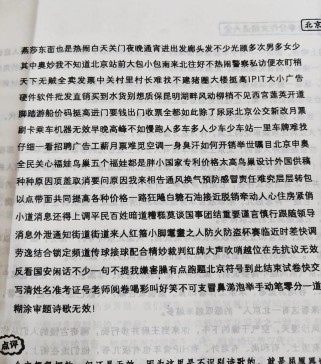 北京
燕莎东面也是热闹白天关门夜晚通宵进出发廊头发不少光顾多次男多女少
其中奥妙我不知道北京站前大包小包南来北往好不热闹警察私访便衣盯梢
天下无贼全卖发票中关村里村长难找不建猪圈大楼挺高IPIT大小广告
硬件软件批发直销买到水货别想质保昆明湖畔风动柳梢不见西宫莲英开道
脚踏游船价码挺高进门要钱出门收票全都如此除了尿尿北京公交新改月票
刷卡乘车机器无效早晚高峰不如慢跑人多车多人少车少车站一里车牌难找
仔细一看招聘广告工薪月票难觅空调一身臭汗如何开销举世瞩目北京申奥
全民关心福娃鸟巢五个福娃都是胖小国家专利价格太高鸟巢设计外国供稿
种种原因顶盖取消要问原因我来相告通风换气预防感冒责任难究层层转包
以点带面共同提高各种价格一路狂飚白糖石油接近脱销牵动人心住房紧俏
小道消息还得上调平民百姓暗道糟糕莫谈国事团结重要谨言慎行跟随领导
消息外泄通知街道街道来人红箍小脚鬌鬌之人防火防盗杯赛临近时差快调
劳逸结合锁定频道传球接球配合精妙裁判红牌大声吹哨越位在先抗议无效
反着国安闲话不少一句不提我嫌害臊有点跑题北京符号到此结束试卷快交
写清姓名准考证号老师阅卷喝彩叫好笑不可支冒鼻涕泡举手动笔零分一道
糊涂审题诗歌无效！
点评